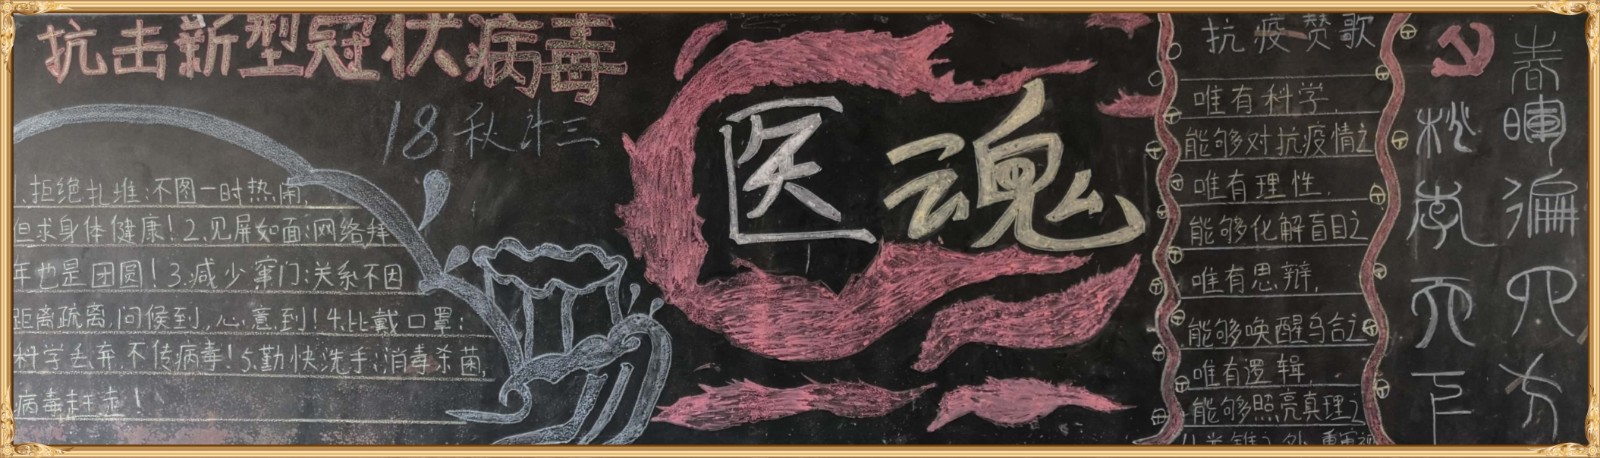 抗击新型冠状病毒
18秋计三
1.拒绝扎堆:不图一时热闹,
但求身体健康!2.见屏如面:网络拜
年也是团圆!3.减少窜门:关系不因
距离疏离,问候到,心意到!4.比戴口罩:
科学丢弃,不传病毒!5.勤快洗手:消毒杀菌,
病毒赶走!
医魂
抗疫赞歌
唯有科学,
能够对抗疫情之
唯有理性,
能够化解盲目之
唯有思辩,
能够唤醒乌合之
唯有逻辑,
能够照亮真理之
春晖遍四方
桃李天下